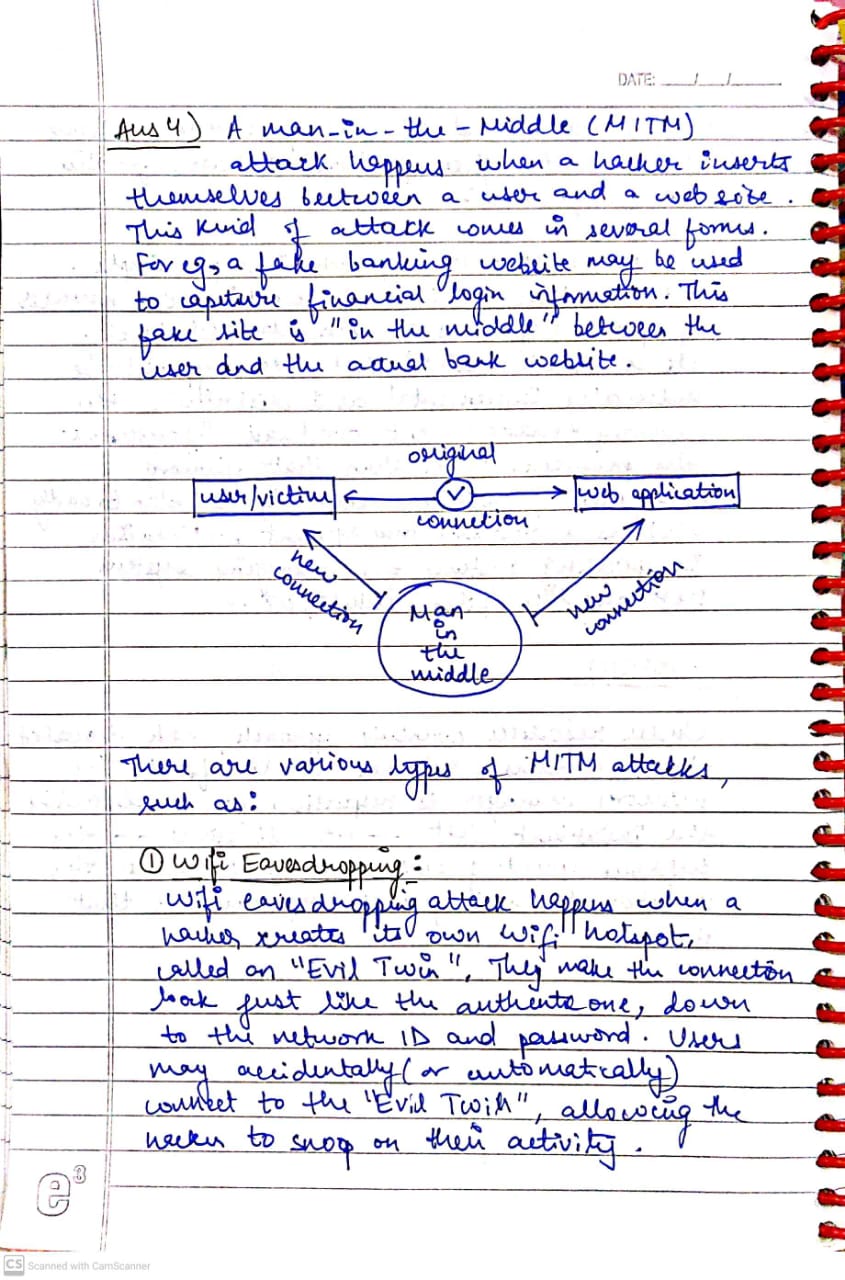 DATE: __/__/____
Ans 4) A man-in-the-Middle (MITM)
attack happens when a hacker inserts
themselves beetween a user and a web site.
This kind of attack comes in several forms.
For eg, a fake banking website may be used
to capture financial login information. This
fake site is "in the middle" between the
user and the actual bank website.
original
user/victim
web application
connetion
new
connection
new
connection
Man
in
the
middle
There are various types of MITM attakks,
such as:
① Wifi Eavesdropping:
Wifi eavesdropping attack happens when a
hacker, creates its own wifi hotspot,
called an "Evil Twin", They make the connection
look just like the authentic one, down
to the network ID and password. Users
may accidentally (or automatically)
connect to the "Evil Twin", allowing the
hacker to snoop on their activity.
e³
CS Scanned with CamScanner